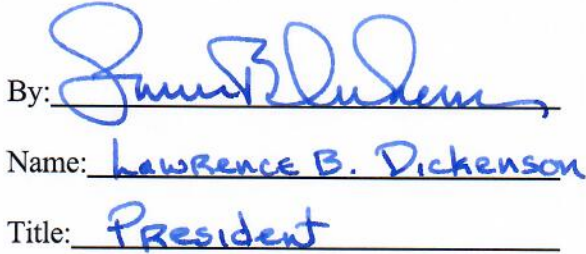 By:
Name: Lawrence B. Dickenson
Title: President